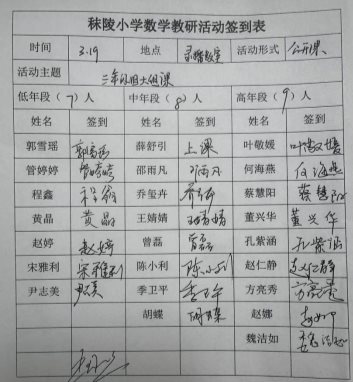 秣陵小学数学教研活动签到表
时间 3.19 地点 录播教室 活动形式 公开课
活动主题
低年段(7)人 中年段(8)人 高年段(9)人
姓名 签到 姓名 签到 姓名 签到
郭雪瑶 郭雪瑶 薛舒引 上课 叶敬媛 叶敬媛
管婷婷 管婷婷 邵雨凡 邵雨凡 何海燕 何海燕
程鑫 程鑫 乔玺卉 乔玺卉 蔡慧阳 蔡慧阳
黄晶 黄晶 王婧婧 王婧婧 董兴华 董兴华
赵婷 赵婷 曾磊 曾磊 孔紫涵 孔紫涵
宋雅利 宋雅利 陈小利 陈小利 赵仁静 赵仁静
尹志美 尹志美 季卫平 季卫平 方亮秀 方亮秀
胡蝶 胡蝶 赵娜 赵娜
魏洁如 魏洁如